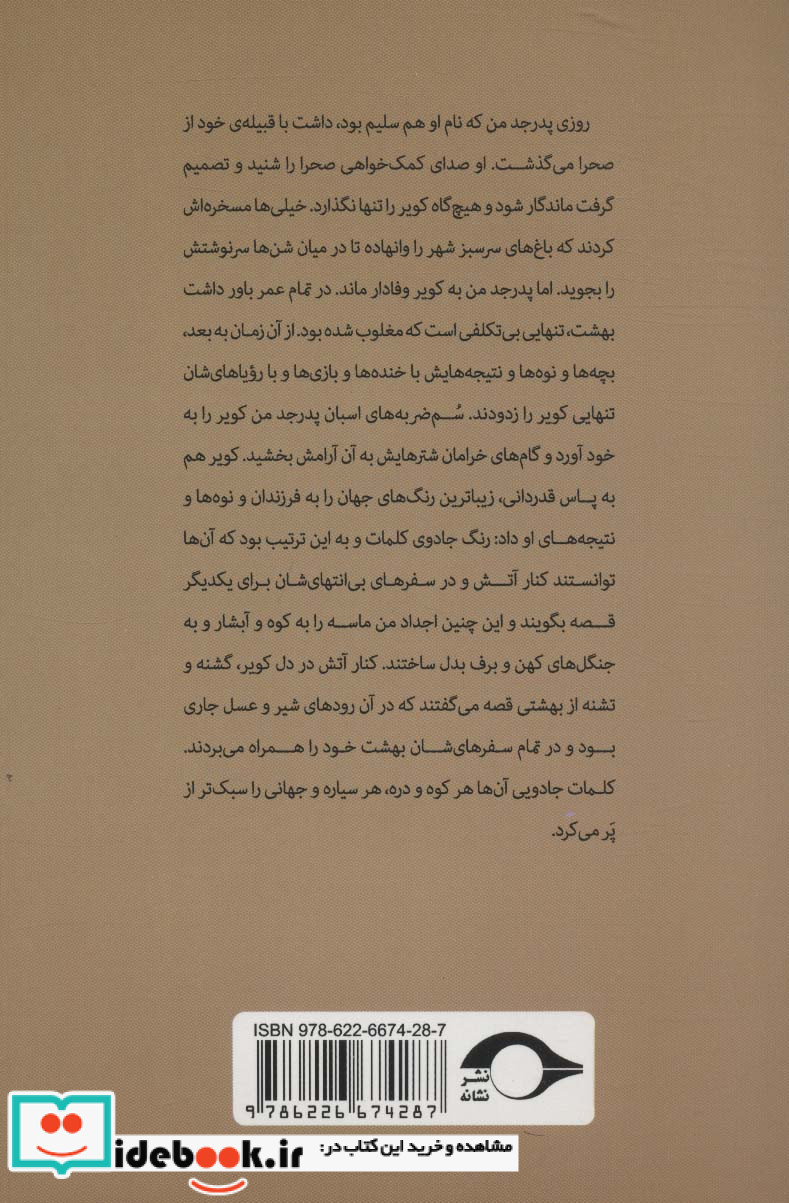 روزی پدرجد من که نام او هم سلیم بود، داشت با قبیله‌ی خود از
صحرا می‌گذشت. او صدای کمک‌خواهی صحرا را شنید و تصمیم
گرفت ماندگار شود و هیچ‌گاه کویر را تنها نگذارد. خیلی‌ها مسخره‌اش
کردند که باغ‌های سرسبز شهر را وانهاده تا در میان شن‌ها سرنوشتش
را بجوید. اما پدرجد من به کویر وفادار ماند. در تمام عمر باور داشت
بهشت، تنهایی بی‌تکلفی است که مغلوب شده بود. از آن زمان به بعد،
بچه‌ها و نوه‌ها و نتیجه‌هایش با خنده‌ها و بازی‌ها و با رؤیاهای‌شان
تنهایی کویر را زدودند. سُم‌ضربه‌های اسبان پدرجد من کویر را به
خود آورد و گام‌های خرامان شترهایش به آن آرامش بخشید. کویر هم
به پاس قدردانی، زیباترین رنگ‌های جهان را به فرزندان و نوه‌ها و
نتیجه‌های او داد: رنگ جادوی کلمات و به این ترتیب بود که آن‌ها
توانستند کنار آتش و در سفرهای بی‌انتهای‌شان برای یکدیگر
قصه بگویند و این چنین اجداد من ماسه را به کوه و آبشار و به
جنگل‌های کهن و برف بدل ساختند. کنار آتش در دل کویر، گشنه و
تشنه از بهشتی قصه می‌گفتند که در آن رودهای شیر و عسل جاری
بود و در تمام سفرهای‌شان بهشت خود را همراه می‌بردند.
کلمات جادویی آن‌ها هر کوه و دره، هر سیاره و جهانی را سبک‌تر از
پَر می‌کرد.
ISBN 978-622-6674-28-7
نشر
نشانه
9 786226 674287
مشاهده و خرید این کتاب در:
idebook.ir